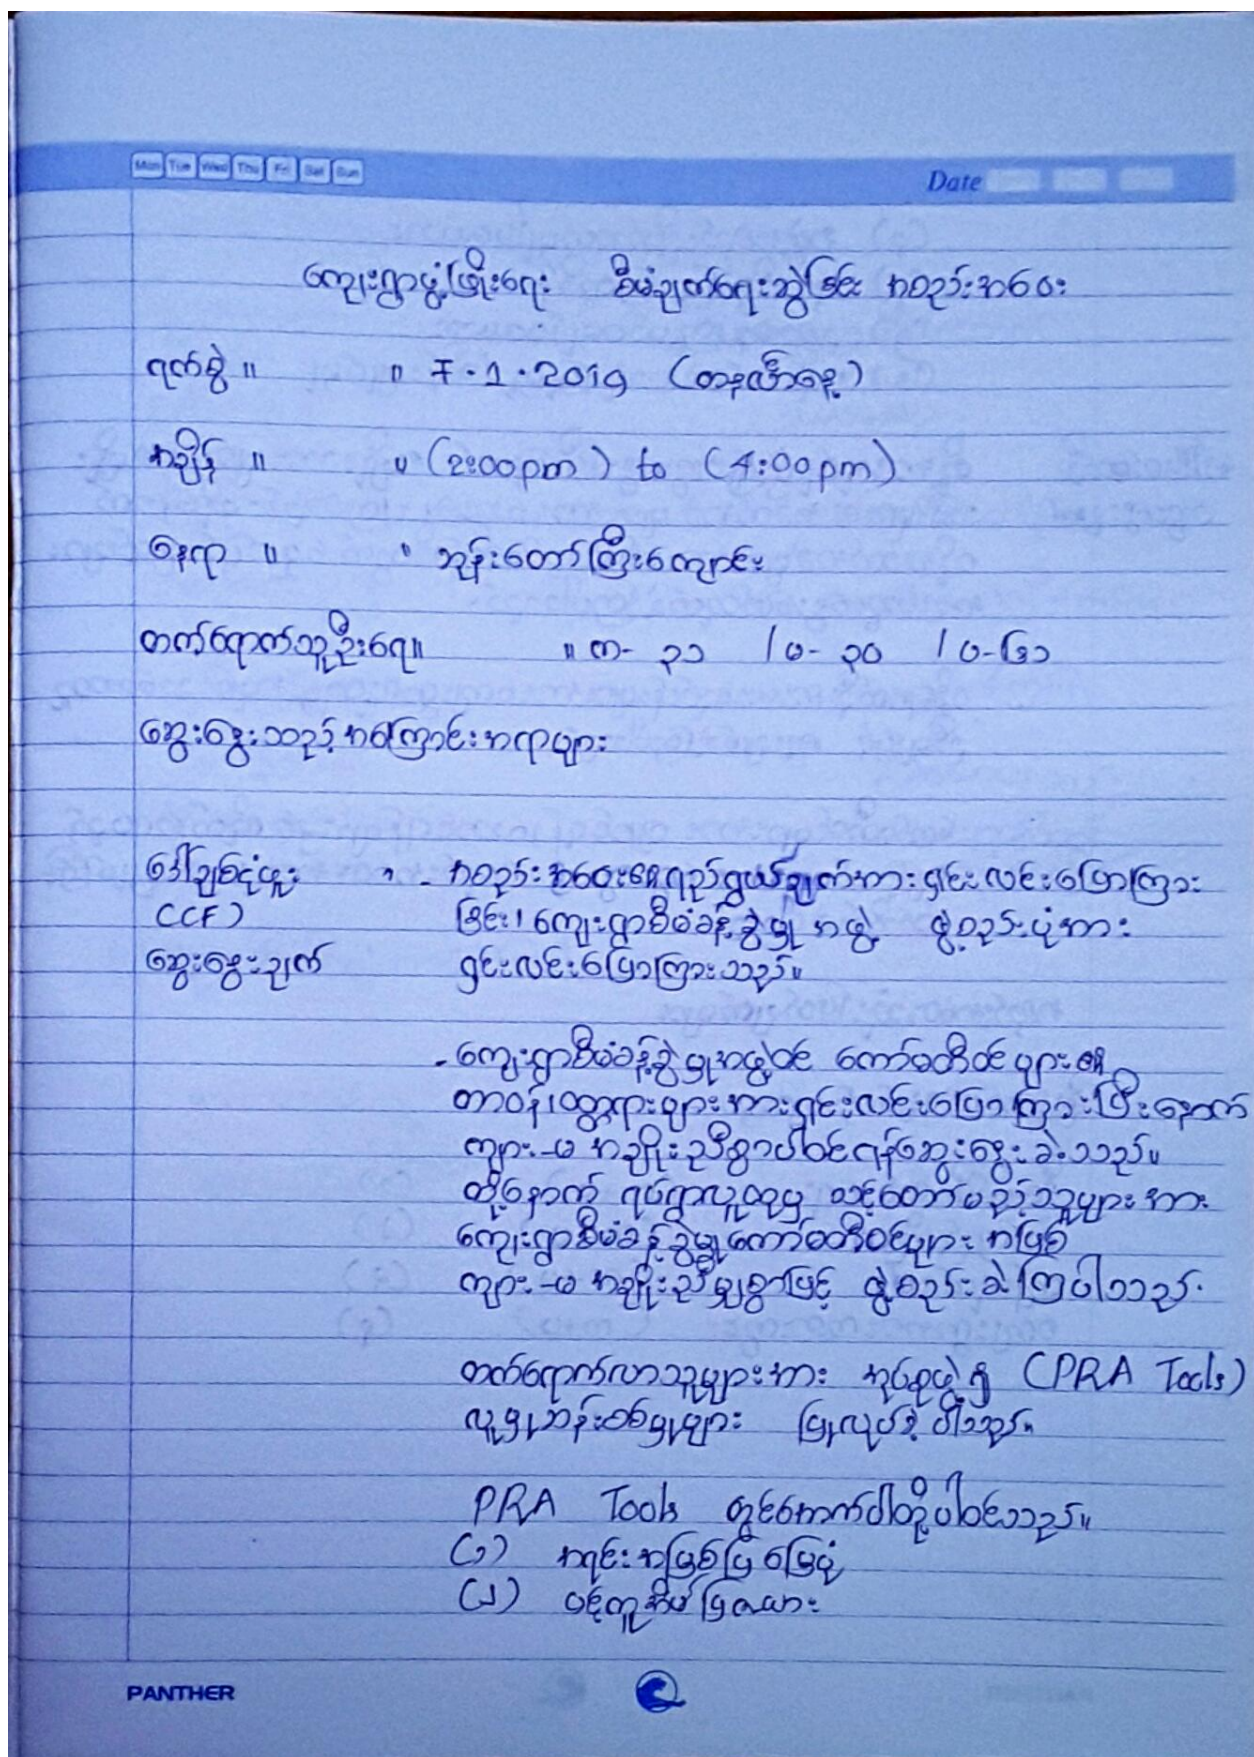 Mon Tue Wed Thu Fri Sat Sun
Date
ကျေးရွာဖွံ့ဖြိုးရေး စီမံချက်ရေးဆွဲခြင်း အစည်းအဝေး
ရက်စွဲ ။ ။ 7.1.2019 (တနင်္လာနေ့)
အချိန် ။ ။ (2:00pm) to (4:00pm)
နေရာ ။ ။ ဘုန်းတော်ကြီးကျောင်း
တက်ရောက်သူဦးရေ။ ။ ကျ- ၃၁ / မ- ၃၀ / ပ-၆၁
ဆွေးနွေးသည့်အကြောင်းအရာများ
အစည်းအဝေး၏ရည်ရွယ်ချက်အားရှင်းလင်းပြောကြား
CCF)
ခြင်း၊ ကျေးရွာစီမံခန့်ခွဲမှု အဖွဲ့ ဖွဲ့စည်းပုံအား
ဆွေးနွေးချက် ရှင်းလင်းပြောကြားသည်။
- ကျေးရွာစီမံခန့်ခွဲမှုအဖွဲ့ဝင် ကော်မတီဝင်များ၏
တာဝန်၊ဝတ္တရားများအားရှင်းလင်းပြောကြားပြီးနောက်
ကျား-မ အချိုးညီစွာပါဝင်ရန်ဆွေးနွေးခဲ့သည်။
ထို့နောက် ရပ်ရွာလူထုမှ သင့်တော်မည့်သူများအား
ကျေးရွာစီမံခန့်ခွဲမှုကော်မတီဝင်များ အဖြစ်
ကျား-မ အချိုးညီမျှစွာဖြင့် ဖွဲ့စည်းခဲ့ကြပါသည်.
တက်ရောက်လာသူများအား အုပ်စုဖွဲ့၍ (PRA Tools)
လူမှုဆန်းစစ်မှုများ ပြုလုပ်ခဲ့ပါသည်။
PRA Tools တွင်အောက်ပါတို့ပါဝင်သည်။
(၁) အရင်းအမြစ်ပြမြေပုံ
(၂) ပင့်ကူအိမ်ပြဇယား
PANTHER